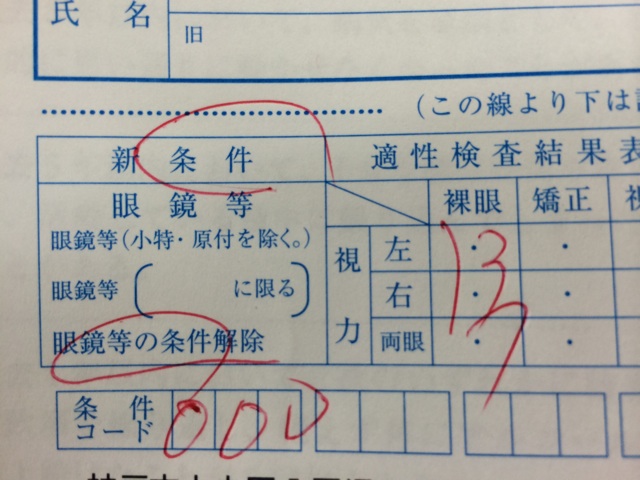 氏 名
旧
(この線より下は
新 条 件
適 性 検 査 結 果 表
眼 鏡 等
裸眼 矯正
眼鏡等(小特・原付を除く。)
視力
左 ・ ・
眼鏡等( に限る)
右 ・ ・
眼鏡等の条件解除
両眼 ・ ・
13
条件コード 000